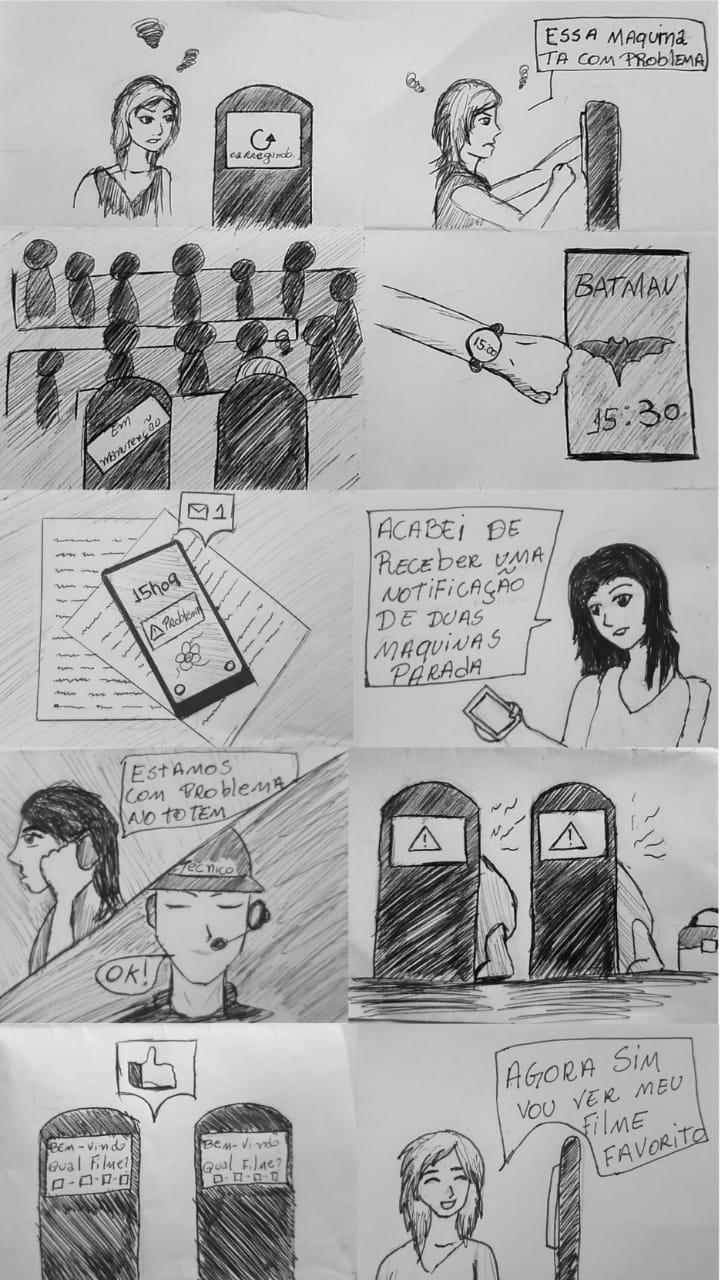 carregando.
ESSA MAQUINA
TA COM PROBLEMA
EM
MANUTENÇÃO
15:00
BATMAN
15:30
1
15h09
Problem
ACABEI DE
RECEBER UMA
NOTIFICAÇÃO
DE DUAS
MAQUINAS
PARADA
ESTAMOS
COM PROBLEMA
NO TOTEM
TÉCNICO
OK!
BEM-VINDO
Qual Filme?
BEM-VINDO
Qual Filme?
AGORA SIM
VOU VER MEU
FILME
FAVORITO